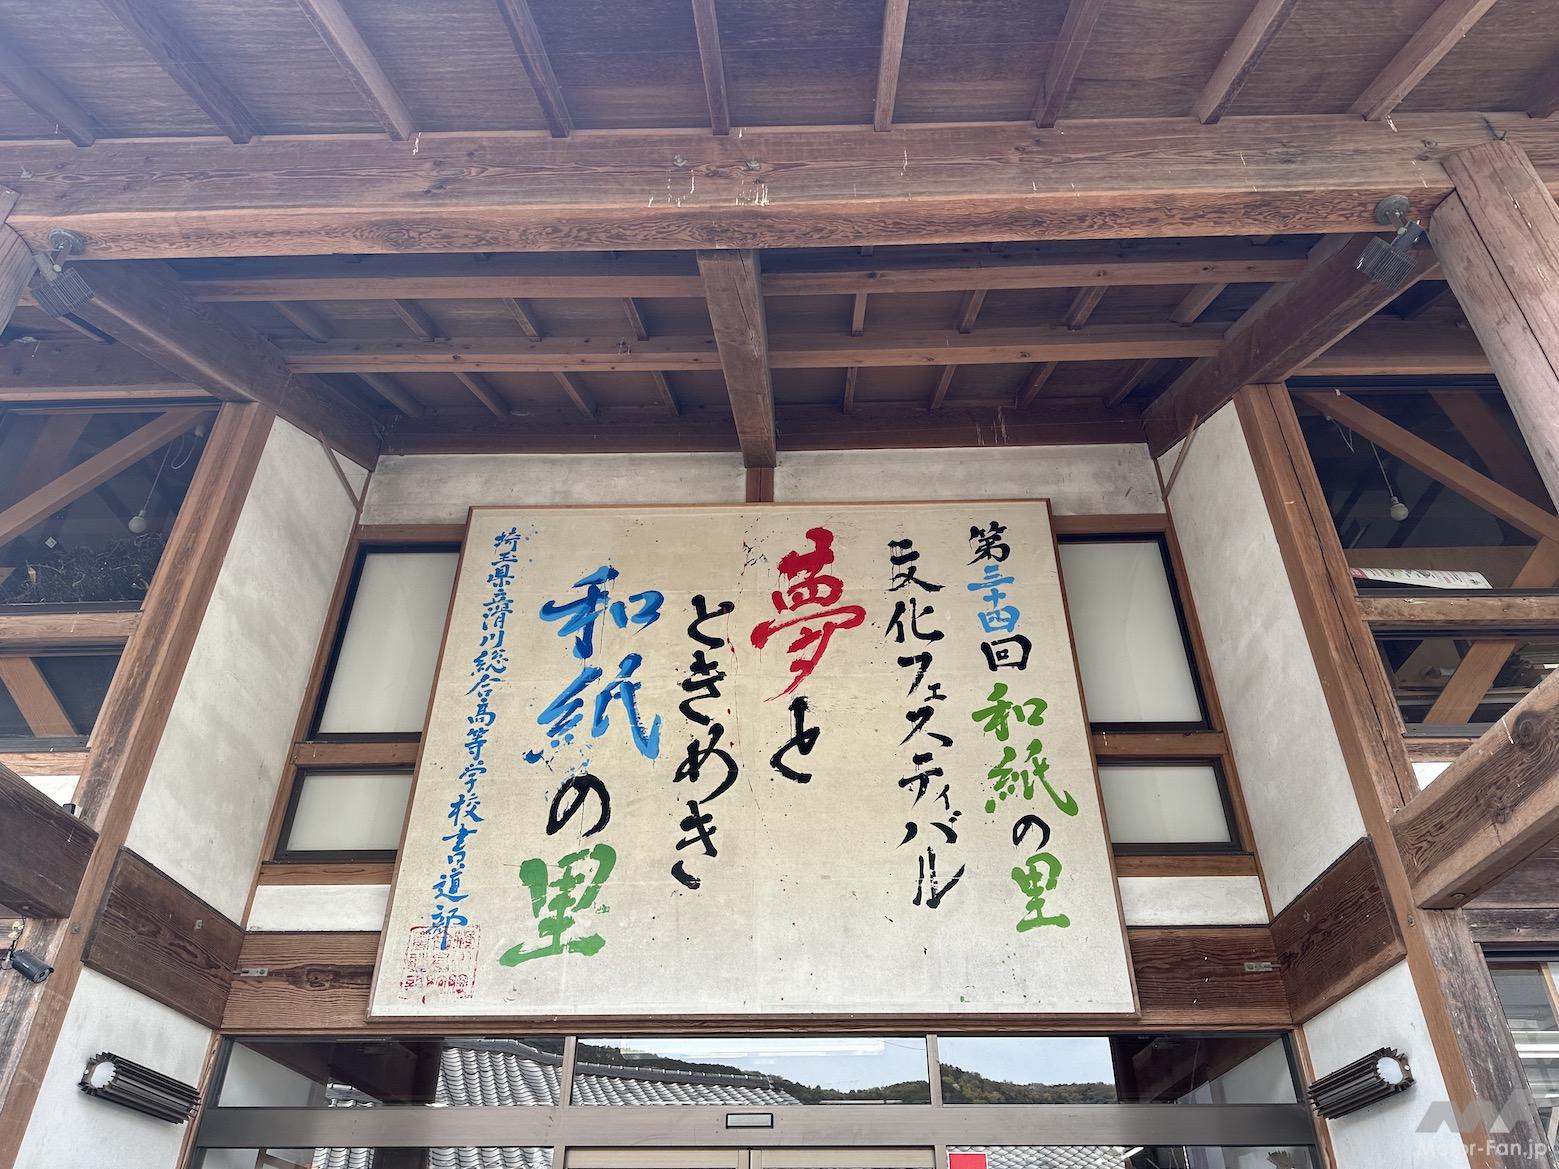 第三十四回 和紙の里
文化フェスティバル
夢と
ときめき
和紙の里
埼玉県立滑川総合高等学校書道部
Motor-Fan.jp